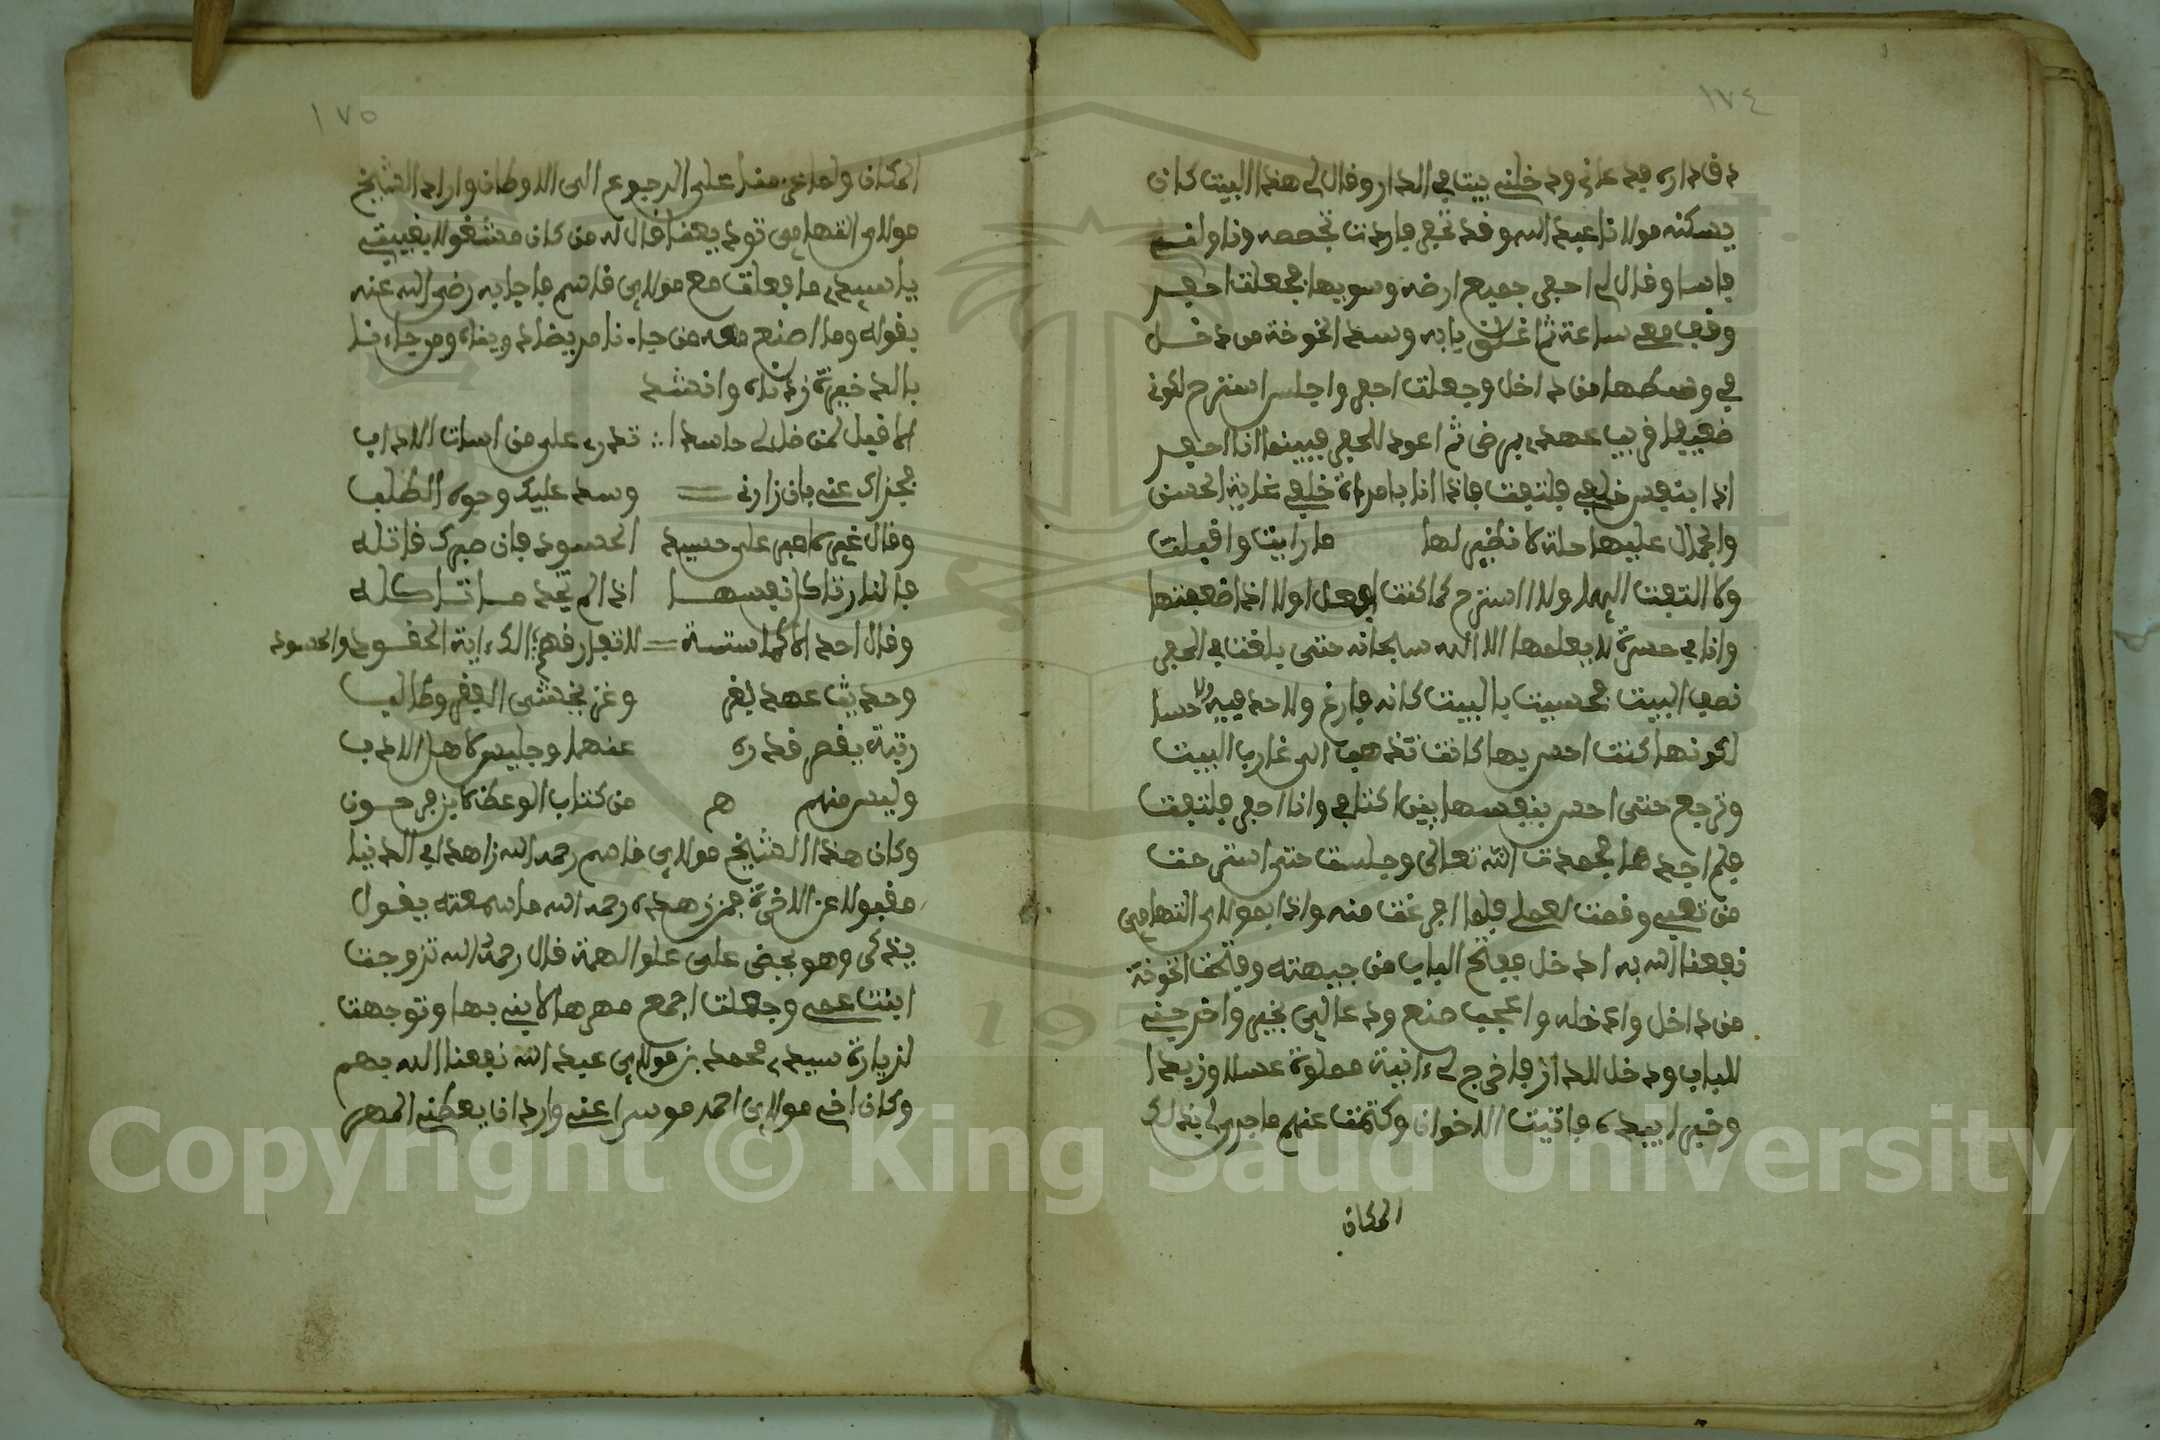 ١٧٤
دق داره فدعاني ودخلني بيت في الدار وقال لي هذا البيت كان
يسكنه مولانا عبد الله وقد تحفر فاردت تجصصه وناولني
فاسا وقال لي احفر جميع ارضه وسويها فجعلت احفر
وقف معي ساعة ثم اغلق بابه وسد الخوخة من دخل
في وسطها من داخل وجعلت احفر واجلس استرح لكوني
ضعيفا قريب عهد بمرض ثم اعود للحفر فبينما انا احفر
اذا بنفس خلفي فلتفت فاذا انا بامراة خلفي غاية الحسن
والجمال عليها حلة لا نظير لها ما رايت واقبلت
ولا التفت اليها ولا استرح كما كنت افعل اولا اذا ضعفتها
وانا في حسرة لا يعلمها الا الله سبحانه حتى بلغت في الحفر
نصف البيت فحسيت بالبيت كانه فارغ ولا حد فيه ولا حسا
لكونها كنت احس بها كانت تذهب الى غارب البيت
وترجع حتى احس بنفسها بين اكتافي وانا احفر فلتفت
فلم اجدها فحمدت الله تعالى وجلست حتى استرحت
من تعبي وقمت لعملي فلما فرغت منه واذا بمولاي التهامي
نفعنا الله به ادخل ففتح الباب من جهته وفتحت الخوخة
من داخل وادخله واعجب صنع ودعا لي بخير واخرجني
للباب ودخل للدار فاخرج لي انية مملوة عسلا وزبدا
وخبز ابيده فاتيت الاخوان وكتمت عنهم ما جرى لي بذلك
المكان
١٧٥
المكان ولما عزمنا على الرجوع الى الاوطان واراد الشيخ
مولاي التهامي توديعنا قال له من كان مشغولا بغيبتي
يا سيدي ما فعلت مع مولاي قاسم فاجابه رضي الله عنه
بقوله وما اصنع معه من جاءنا مريضا داويناه ومن جاءنا
بالذخيرة زدناه وانشد
الا قبل لمن ظل لي حاسدا ∴ تدري على من اسات الادب
فجزاك عني بان زارني = وسد عليك وجوه الطلب
وقال غيره اصبر على حسد الحسود فان صبرك قاتله
فالنار تاكل نفسها اذا لم تجد ما تاكله
وقال احد الحكما ستة = لا تفارقهم الكءابة الحقود والحسود
وحديث عهد بغنى وغني يخشى الفقر وطالب
رتبة يقصر قدره عنها وجليس لاهل الادب
وليس منهم هـ من كتاب الوعظ لابن فرحون
وكان هذا الشيخ مولاي قاسم رحمه الله زاهدا في الدنيا
مقبولا عن الاخرة فمن زهده رحمه الله ما سمعته يقول
يذكر وهو يحض على علو الهمة قال رحمه الله تزوجت
ابنت عمي وجعلت اجمع مهرها لابني بها وتوجهت
لزيارة سيدي محمد بن مولاي عبد الله نفعنا الله بهم
وكان اخي مولاي احمد موسرا عني واراد ان يعطيني المهر